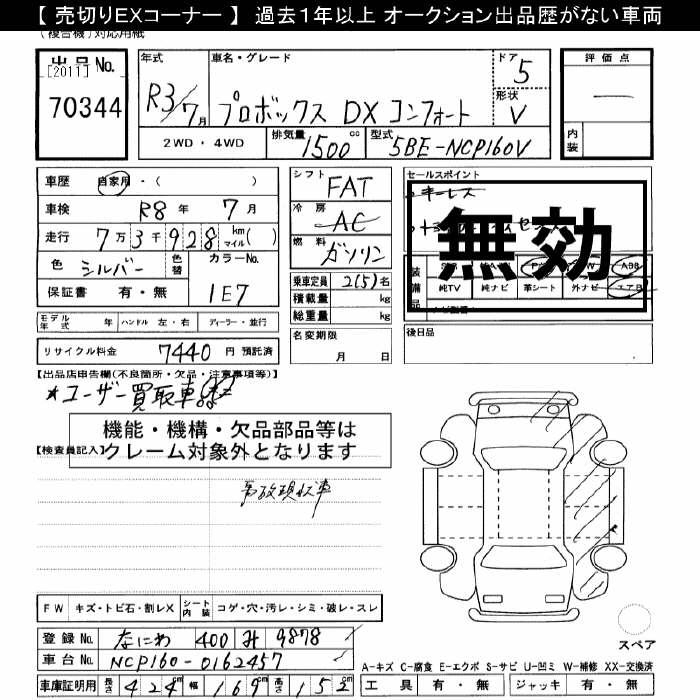 【 売切りEXコーナー 】 過去１年以上 オークション出品歴がない車両
(複合機)対応用紙
出品No. [2011] 70344
年式 R3/7月
車名・グレード プロボックス DX コンフォート
ドア 5
形状 V
2WD・4WD
排気量 1500 cc
型式 5BE-NCP160V
評価点 —
内装
車歴 自家用・( )
車検 R8年 7月
走行 7万3千928 km マイル( )
色 シルバー 色替
カラーNo. 1E7
保証書 有・無
モデル年式 年 ハンドル 左・右 ディーラー・並行
リサイクル料金 7440 円 預託済
シフト FAT
冷房 AC
燃料 ガソリン
乗車定員 2(5)名
積載量 kg
総重量 kg
名変期限 月 日
セールスポイント
キーレス
無効
装備品
純TV 純ナビ 革シート 外ナビ エアB
後日品
【出品店申告欄(不良箇所・欠品・注意事項等)】
*ユーザー買取車
機能・機構・欠品部品等は
クレーム対象外となります
【検査員記入】
事故現状車
FW キズ・トビ石・割レX シート内装 コゲ・穴・汚レ・シミ・破レ・スレ
登録No. なにわ 400 9878
車台No. NCP160-0162457
車庫証明用 長さ 424cm 幅 169cm 高さ 152cm
スペア
A-キズ C-腐食 E-エクボ S-サビ U-凹ミ W-補修 XX-交換済
工具 有・無 ジャッキ 有・無